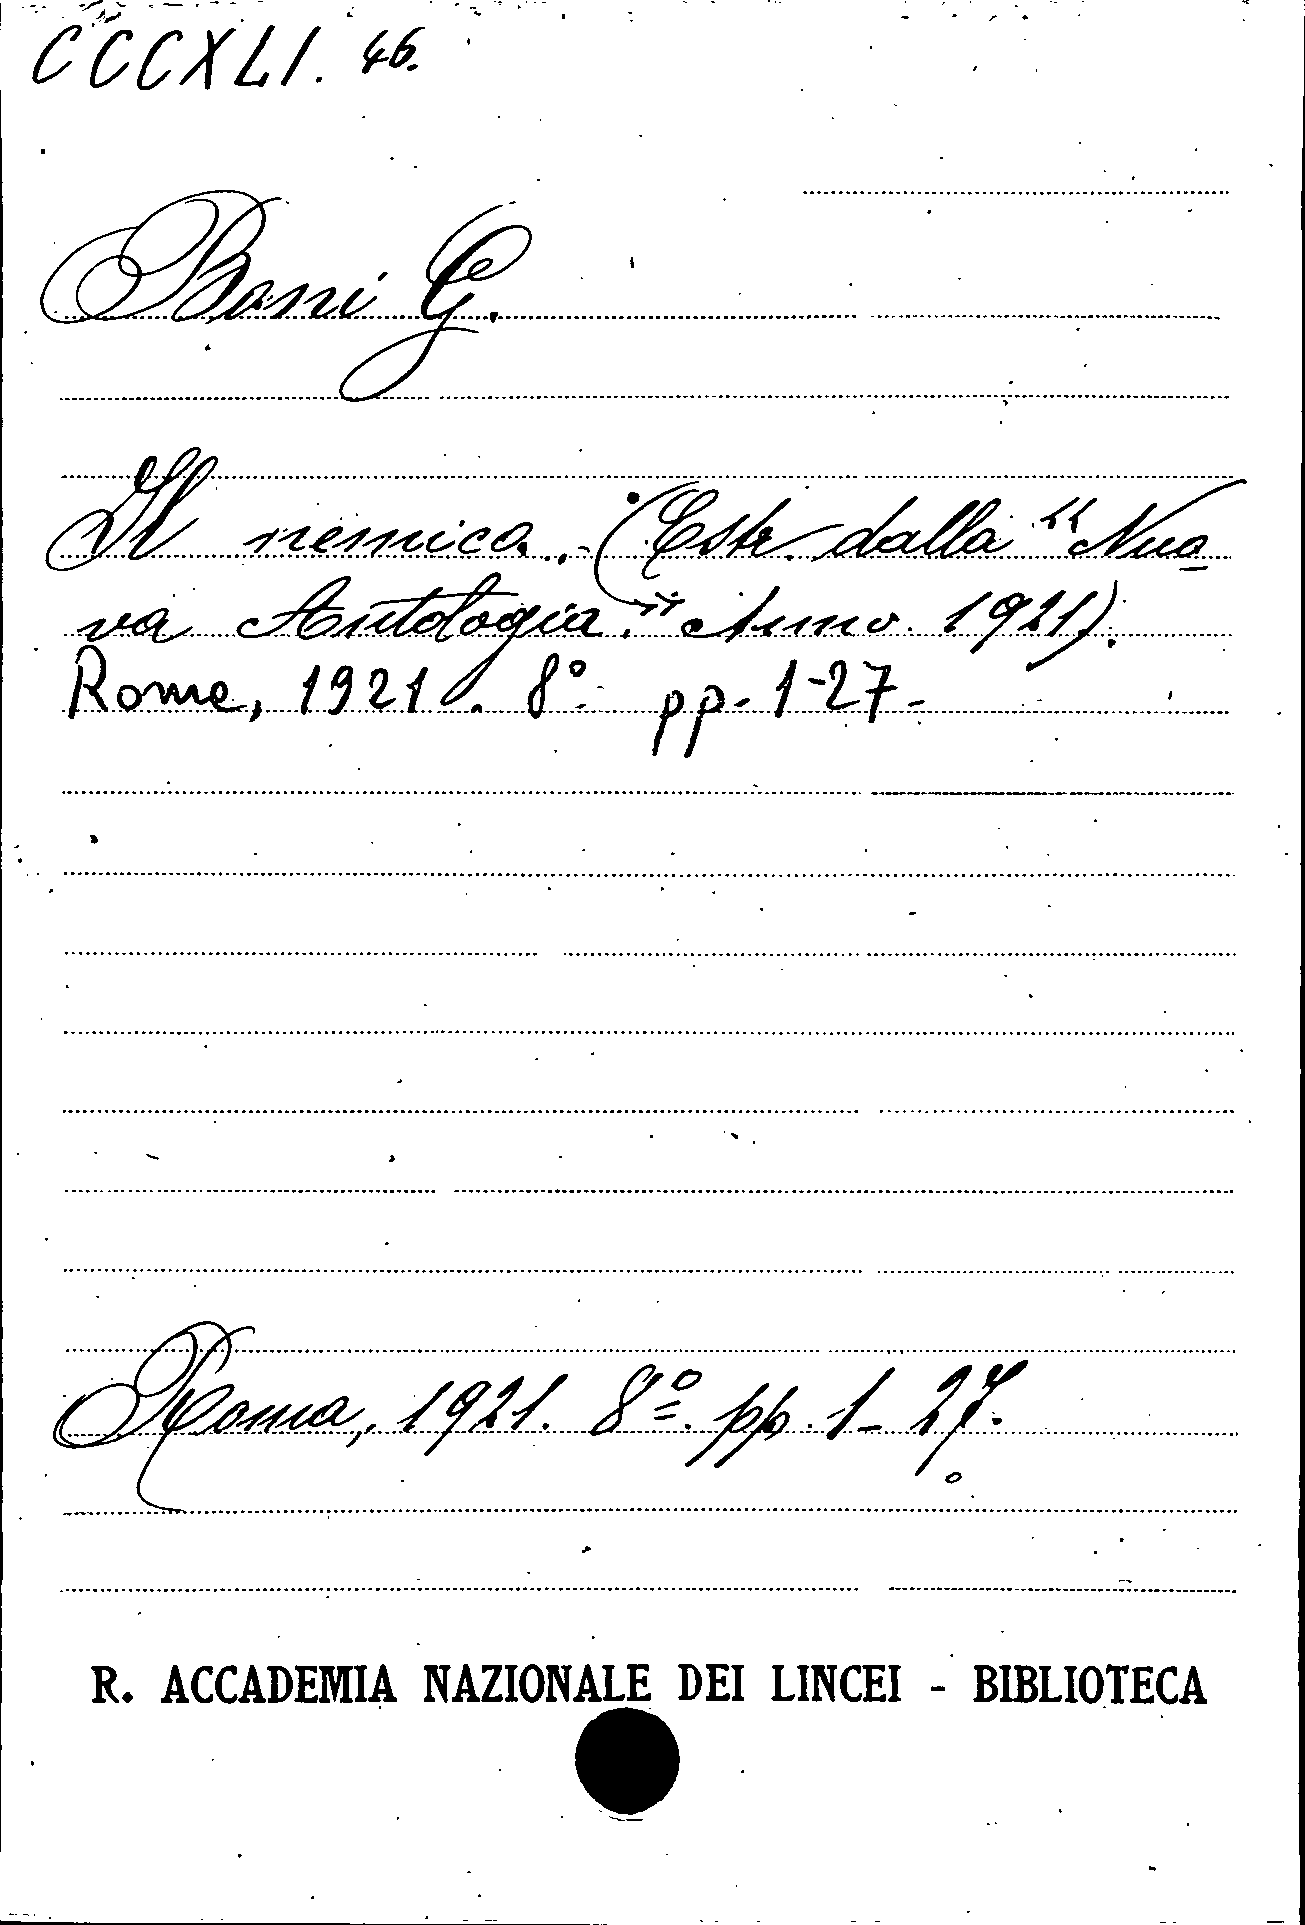 CCCXLI. 46.
Bani G.
Il nemico. - (Estr. dalla "Nuo
va Antologia." Anno 1921).
Rome, 1921. 8° pp. 1-27-
Roma, 1921. 8° pp. 1-27.
R. ACCADEMIA NAZIONALE DEI LINCEI - BIBLIOTECA